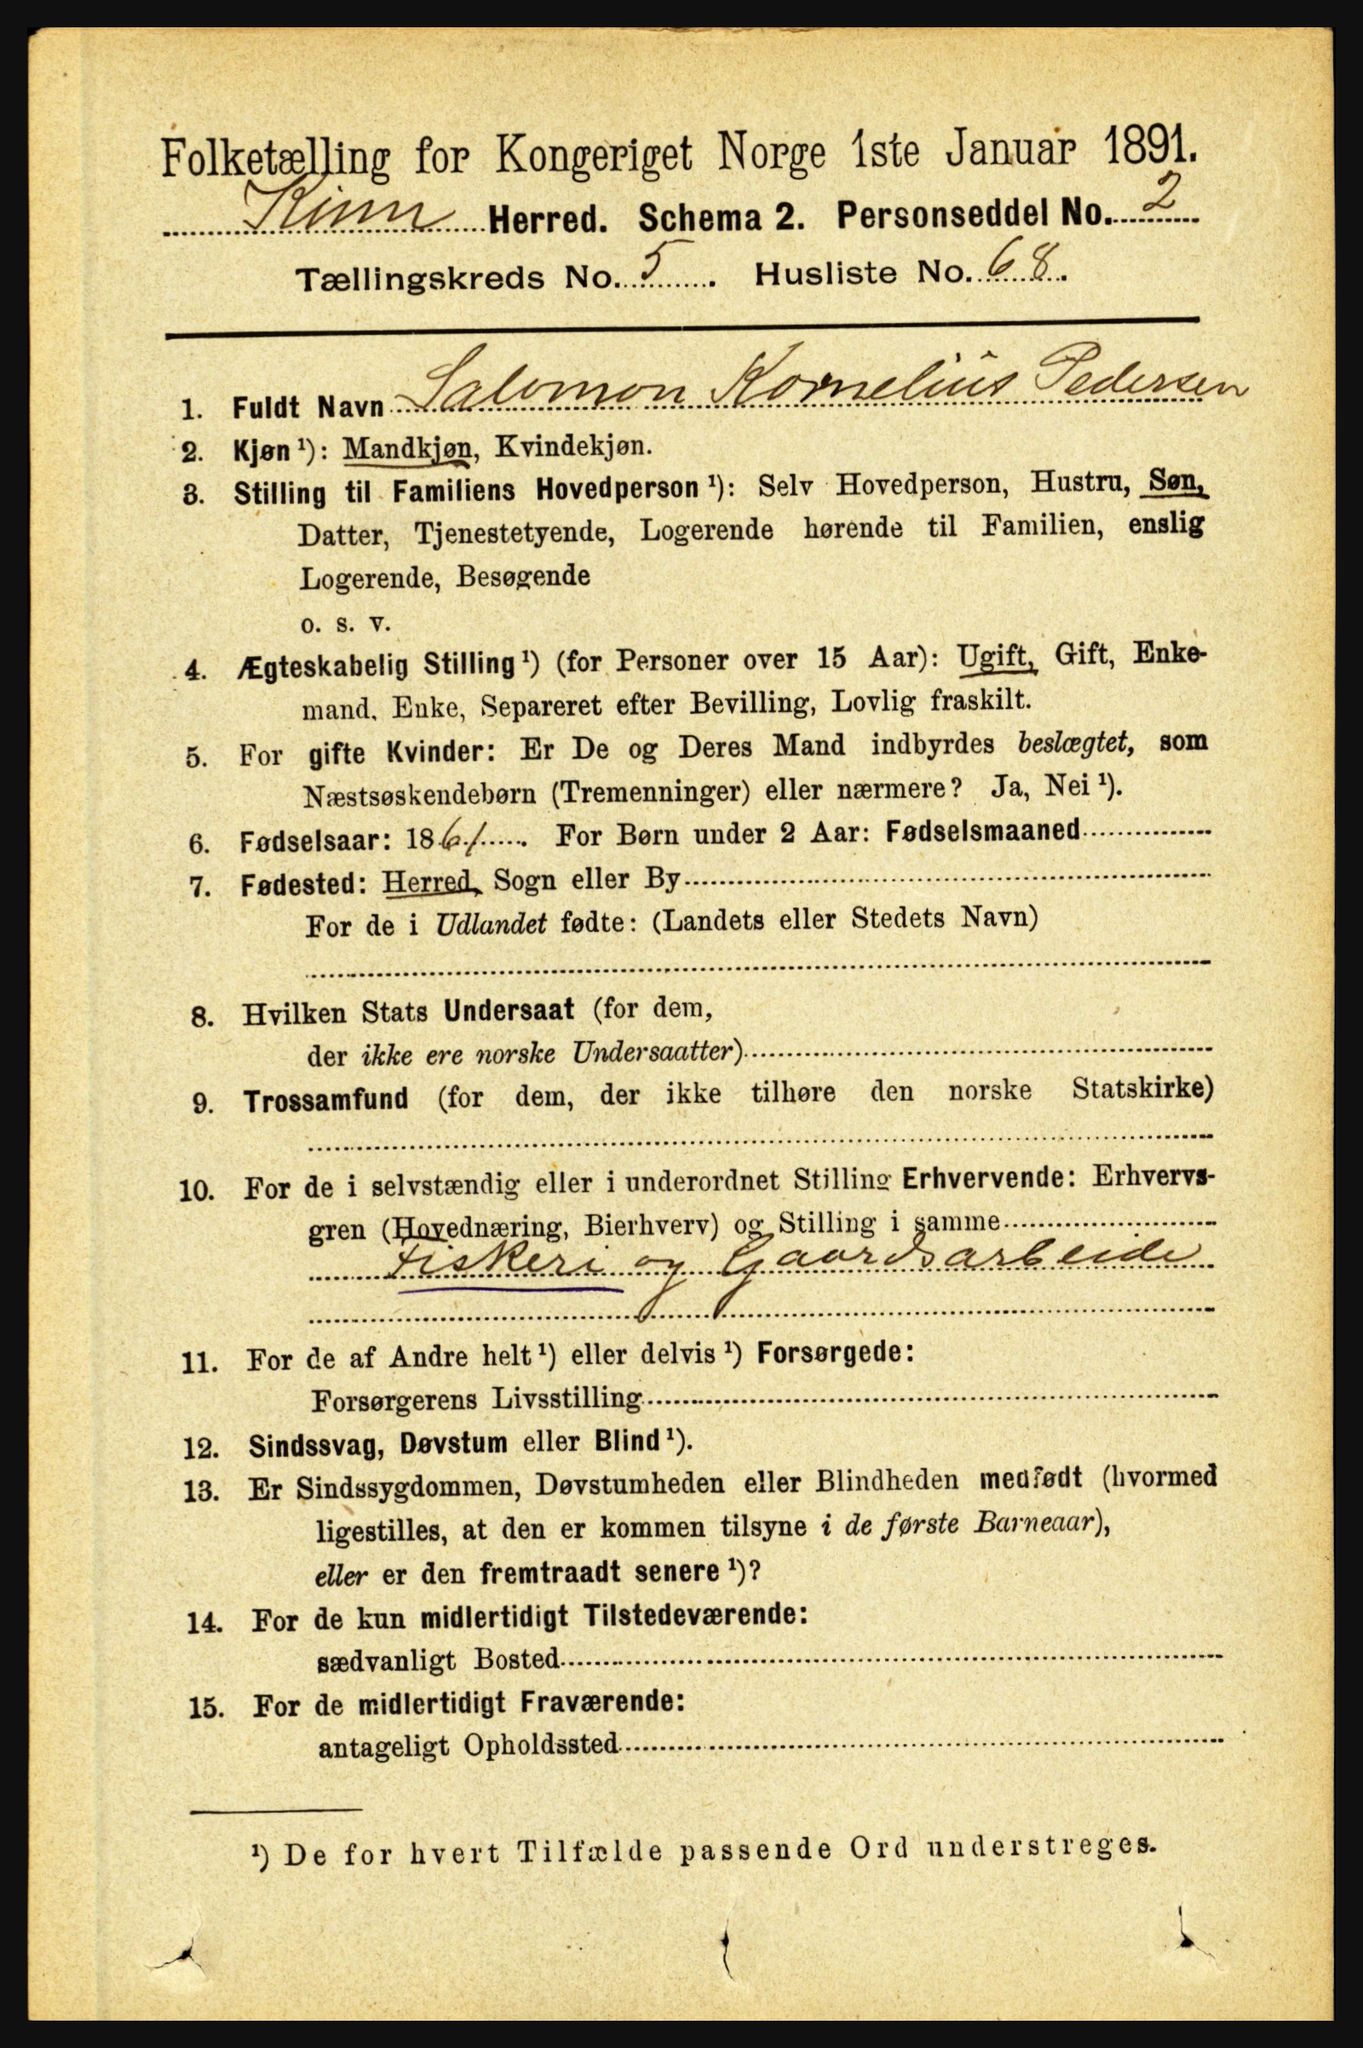 Folketælling for Kongeriget Norge 1ste Januar 1891.
Kinn Herred. Schema 2. Personseddel No. 2
Tællingskreds No. 5. Husliste No. 68.
1. Fuldt Navn Salomon Kornelius Pedersen
2. Kjøn ¹): Mandkjøn, Kvindekjøn.
3. Stilling til Familiens Hovedperson ¹): Selv Hovedperson, Hustru, Søn,
Datter, Tjenestetyende, Logerende hørende til Familien, enslig
Logerende, Besøgende
o. s. v.
4. Ægteskabelig Stilling ¹) (for Personer over 15 Aar): Ugift, Gift, Enke-
mand, Enke, Separeret efter Bevilling, Lovlig fraskilt.
5. For gifte Kvinder: Er De og Deres Mand indbyrdes beslægtet, som
Næstsøskendebørn (Tremenninger) eller nærmere? Ja, Nei ¹).
6. Fødselsaar: 1861. For Børn under 2 Aar: Fødselsmaaned
7. Fødested: Herred, Sogn eller By
For de i Udlandet fødte: (Landets eller Stedets Navn)
8. Hvilken Stats Undersaat (for dem,
der ikke ere norske Undersaatter)
9. Trossamfund (for dem, der ikke tilhøre den norske Statskirke)
10. For de i selvstændig eller i underordnet Stilling Erhvervende: Erhvervs-
gren (Hovednæring, Bierhverv) og Stilling i samme
Fiskeri og Gaardsarbeide
11. For de af Andre helt ¹) eller delvis ¹) Forsørgede:
Forsørgerens Livsstilling
12. Sindssvag, Døvstum eller Blind ¹).
13. Er Sindssygdommen, Døvstumheden eller Blindheden medfødt (hvormed
ligestilles, at den er kommen tilsyne i de første Barneaar),
eller er den fremtraadt senere ¹)?
14. For de kun midlertidigt Tilstedeværende:
sædvanligt Bosted
15. For de midlertidigt Fraværende:
antageligt Opholdssted
¹) De for hvert Tilfælde passende Ord understreges.